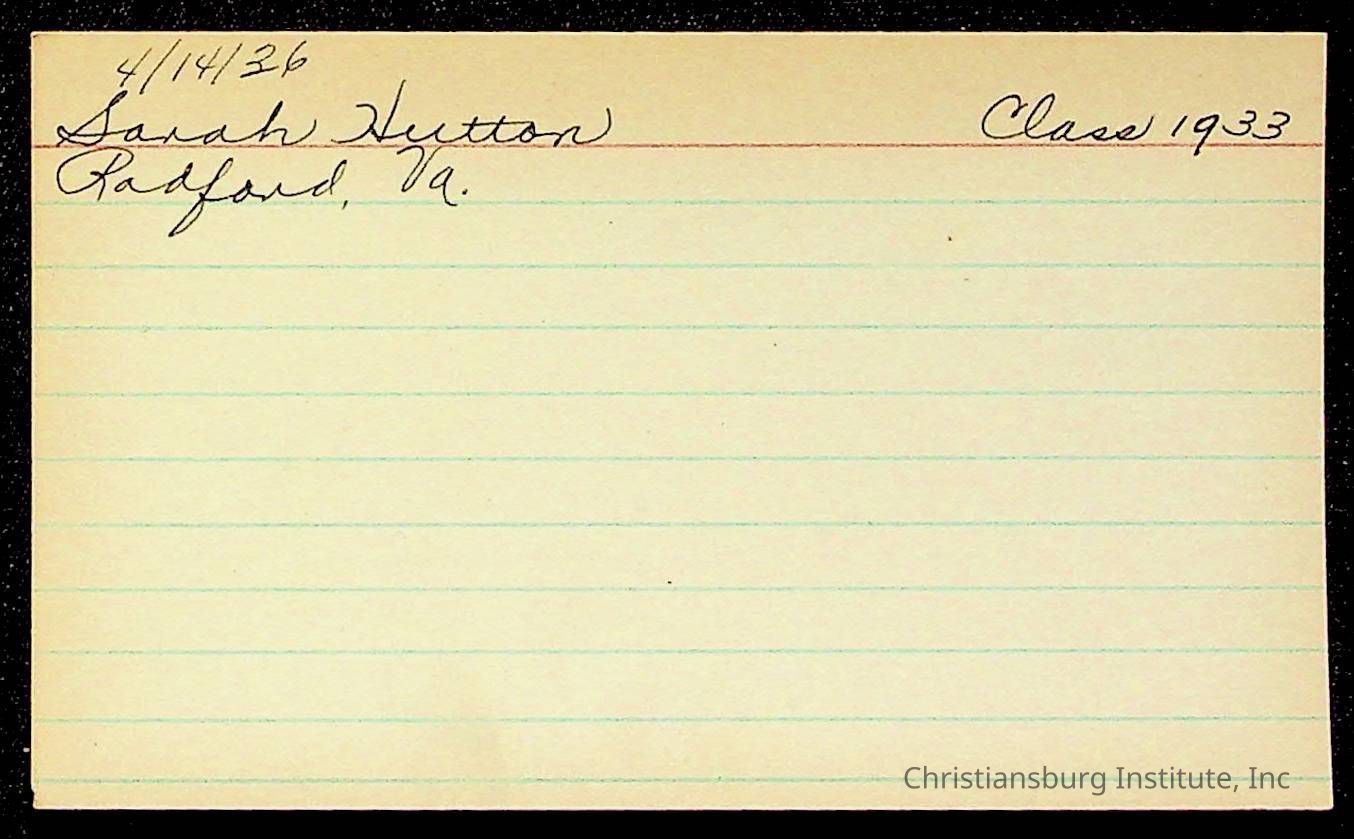 4/14/36
Sarah Hutton Class 1933
Radford, Va.
Christiansburg Institute, Inc